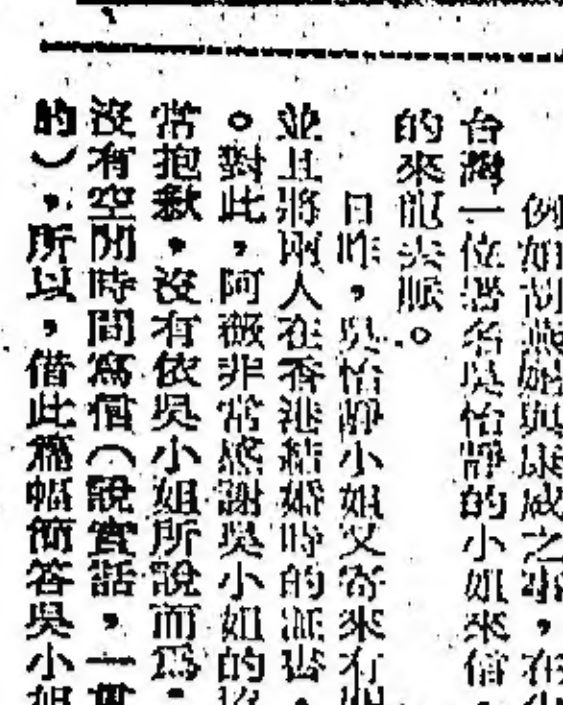 例如胡燕妮與康威之事,在
台灣一位署名吳怡靜的小姐來信
的來龍去脈。
日昨,吳怡靜小姐又寄來有
並且將兩人在香港結婚時的証書,
。對此,阿薇非常感謝吳小姐的
常抱歉,沒有依吳小姐所說而爲,
沒有空閒時間寫信(說實話,一
的),所以,借此篇幅簡答吳小姐